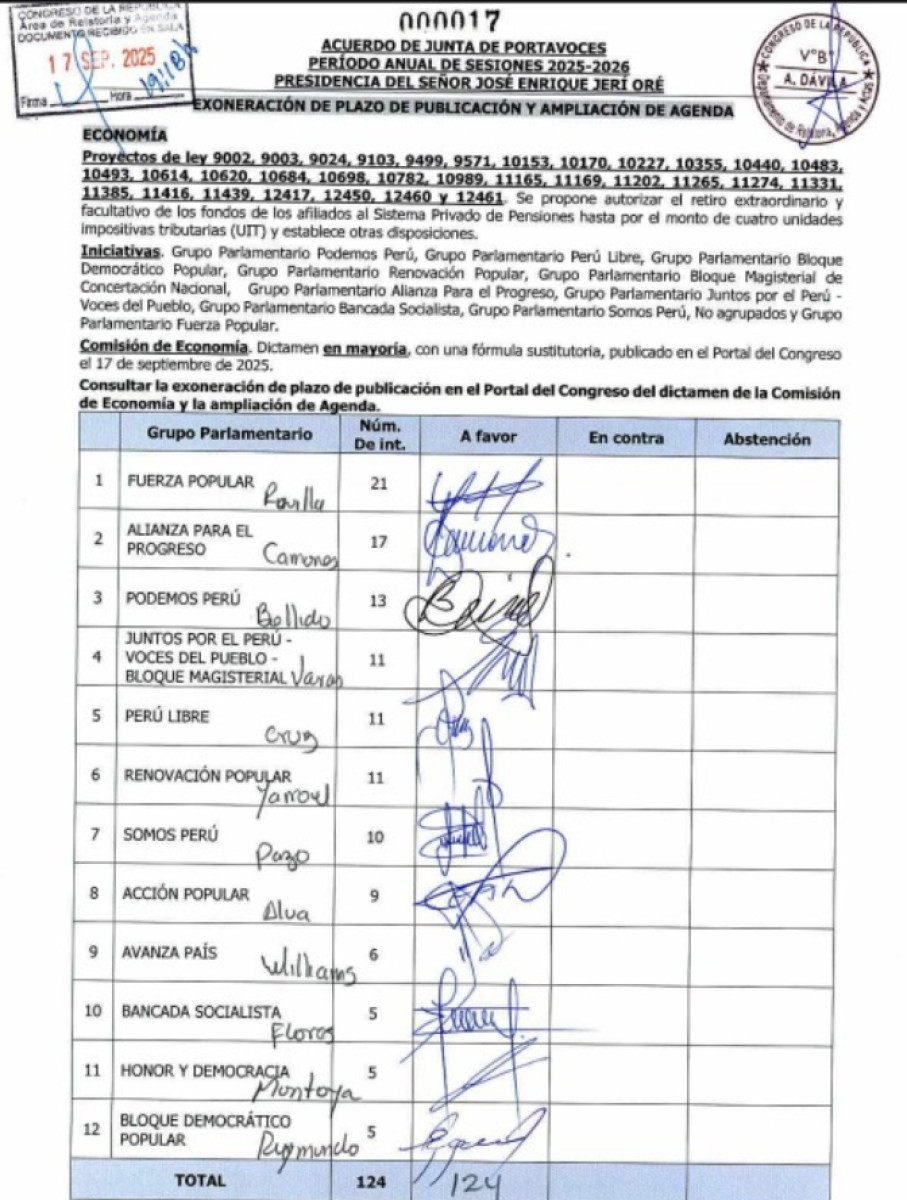 CONGRESO DE LA REPÚBLICA
Área de Relatoría y Agenda
DOCUMENTO RECIBIDO EN SALA
17 SEP. 2025
Firma Hora 19:18h
000017
ACUERDO DE JUNTA DE PORTAVOCES
PERÍODO ANUAL DE SESIONES 2025-2026
PRESIDENCIA DEL SEÑOR JOSÉ ENRIQUE JERÍ ORÉ
EXONERACIÓN DE PLAZO DE PUBLICACIÓN Y AMPLIACIÓN DE AGENDA
CONGRESO DE LA REPÚBLICA
V°B°
A. DÁVILA
Departamento de Relatoría, Agenda y Actas
ECONOMÍA
Proyectos de ley 9002, 9003, 9024, 9103, 9499, 9571, 10153, 10170, 10227, 10355, 10440, 10483,
10493, 10614, 10620, 10684, 10698, 10782, 10989, 11165, 11169, 11202, 11265, 11274, 11331,
11385, 11416, 11439, 12417, 12450, 12460 y 12461. Se propone autorizar el retiro extraordinario y
facultativo de los fondos de los afiliados al Sistema Privado de Pensiones hasta por el monto de cuatro unidades
impositivas tributarias (UIT) y establece otras disposiciones.
Iniciativas. Grupo Parlamentario Podemos Perú, Grupo Parlamentario Perú Libre, Grupo Parlamentario Bloque
Democrático Popular, Grupo Parlamentario Renovación Popular, Grupo Parlamentario Bloque Magisterial de
Concertación Nacional, Grupo Parlamentario Alianza Para el Progreso, Grupo Parlamentario Juntos por el Perú -
Voces del Pueblo, Grupo Parlamentario Bancada Socialista, Grupo Parlamentario Somos Perú, No agrupados y Grupo
Parlamentario Fuerza Popular.
Comisión de Economía. Dictamen en mayoría, con una fórmula sustitutoria, publicado en el Portal del Congreso
el 17 de septiembre de 2025.
Consultar la exoneración de plazo de publicación en el Portal del Congreso del dictamen de la Comisión
de Economía y la ampliación de Agenda.
Grupo Parlamentario Núm. De int. A favor En contra Abstención
1 FUERZA POPULAR Revilla 21
2 ALIANZA PARA EL PROGRESO Camones 17
3 PODEMOS PERÚ Bellido 13
4 JUNTOS POR EL PERÚ - VOCES DEL PUEBLO - BLOQUE MAGISTERIAL Varas 11
5 PERÚ LIBRE Cruz 11
6 RENOVACIÓN POPULAR Yarrow 11
7 SOMOS PERÚ Pazo 10
8 ACCIÓN POPULAR Alva 9
9 AVANZA PAÍS Williams 6
10 BANCADA SOCIALISTA Flores 5
11 HONOR Y DEMOCRACIA Montoya 5
12 BLOQUE DEMOCRÁTICO POPULAR Reymundo 5
TOTAL 124 124